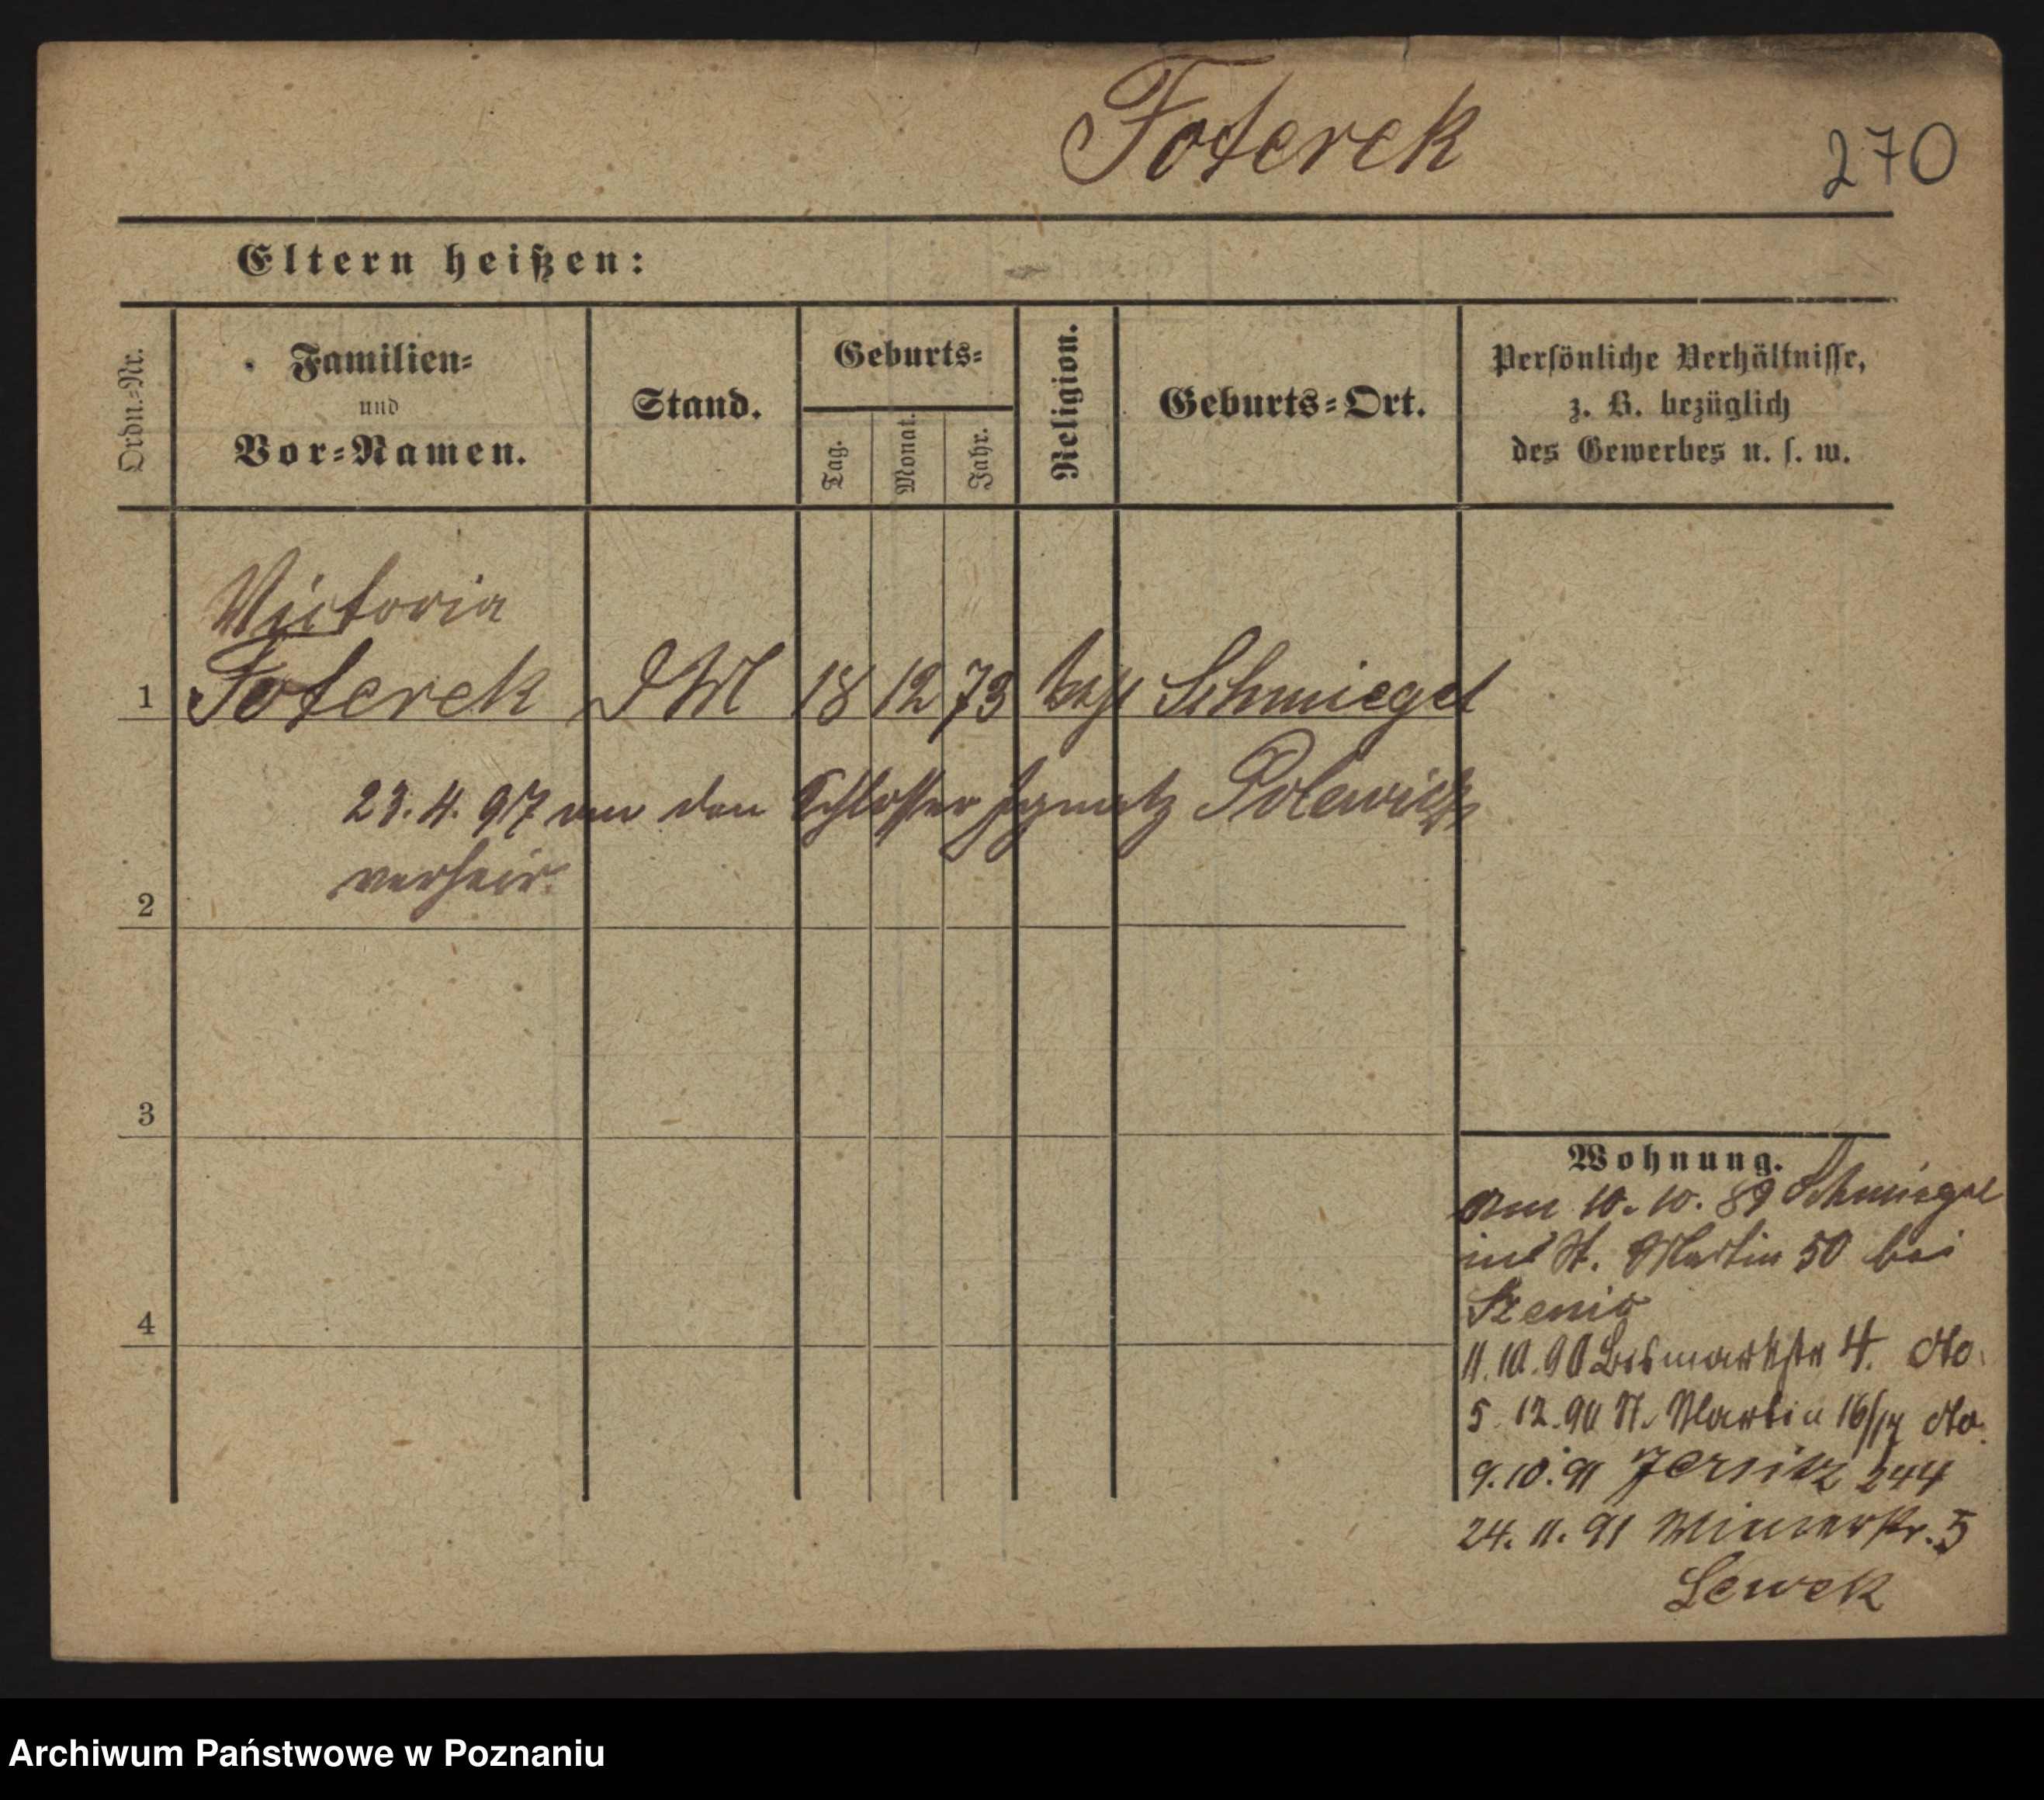 Foterek
270
Eltern heißen:
Ordn.-Nr.
Familien-
und
Vor-Namen.
Stand.
Geburts-
Tag.
Monat.
Jahr.
Religion.
Geburts-Ort.
Persönliche Verhältnisse,
z. B. bezüglich
des Gewerbes u. s. w.
Victoria
1 Foterek DM 18 12 73 Schmiegel
23. 4. 97 an den Schlosser Ignatz
verheir.
2
3
4
Wohnung.
am 10. 10. 89 Schmiegel
St. Martin 50 bei
11. 10. 90 Bismarkstr 4. dto.
5. 12. 90 St. Martin 16/17 dto.
9. 10. 91 Jersitz 244
24. 11. 91 5
Lewek
Archiwum Państwowe w Poznaniu